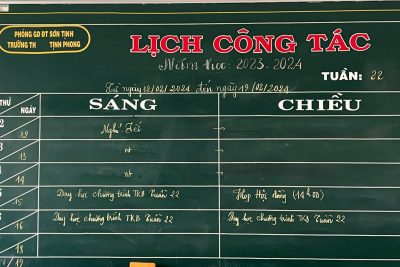 PHÒNG GD ĐT SƠN TỊNH
TRƯỜNG TH TỊNH PHONG
LỊCH CÔNG TÁC
Năm học: 2023-2024
TUẦN: 22
Từ ngày 12/02/2024 đến ngày 19/02/2024
THỨ NGÀY SÁNG CHIỀU
2 12 Nghỉ Tết
3 13 nt
4 14 nt
5 15 Dạy học chương trình TKB Tuần 22 Họp Hội đồng (14h00)
6 16 Dạy học chương trình TKB Tuần 22 Dạy học chương trình TKB Tuần 22
18
19